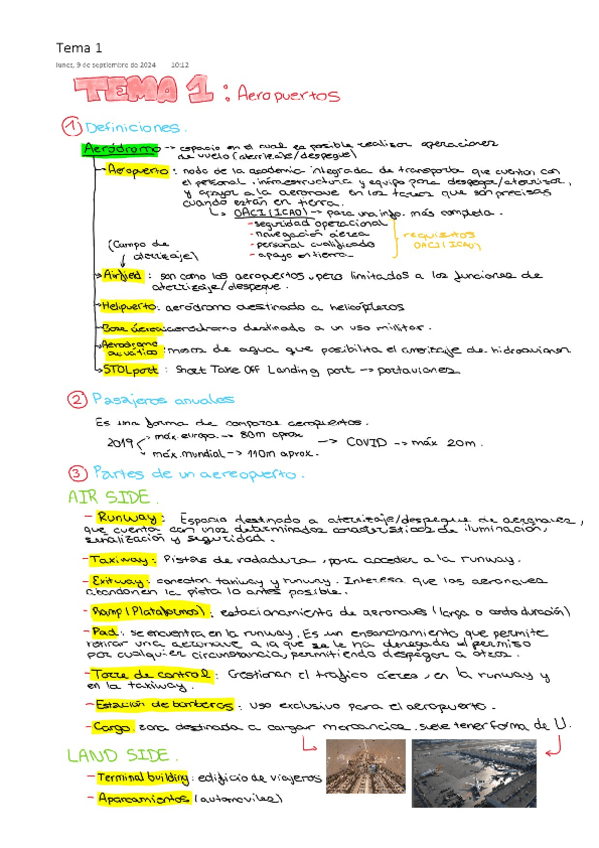 Tema 1
lunes, 9 de septiembre de 2024 10:12
TEMA 1 : Aeropuertos
1 Definiciones.
Aeródromo → espacio en el cual es posible realizar operaciones
de vuelo (aterrizaje/despegue)
- Aeropuerto : nodo de la academia integrada de transporte que cuentan con
el personal, infraestructura y equipo para despegar/aterrizar,
y apoyar a la aeronave en las tareas que son precisas
cuando están en tierra.
↳ OACI (ICAO) → para una info. más completa.
- seguridad operacional
- navegación aérea
- personal cualificado
- apoyo en tierra
requisitos
OACI (ICAO)
(Campo de
aterrizaje)
Airfied : son como los aeropuertos, pero limitados a las funciones de
aterrizaje/despegue.
Helipuerto: aeródromo destinado a helicópteros
Base aérea: aeródromo destinado a un uso militar.
Aeródromo
acuático : masa de agua que posibilita el amerizaje de hidroaviones
STOLport : Short Take Off Landing port → portaviones
2 Pasajeros anuales
Es una forma de comparar aeropuertos.
2019 máx. europa. → 80m aprox
máx. mundial → 110m aprox.
→ COVID → máx 20m.
3 Partes de un aereopuerto.
AIR SIDE.
- Runway : Espacio destinado a aterrizaje/despegue de aeronaves,
que cuenta con unas determinadas características de iluminación,
señalización y seguridad.
- Taxiway : Pistas de rodadura, para acceder a la runway.
- Exitway : conectan taxiway y runway. Interesa que las aeronaves
abandonen la pista lo antes posible.
- Ramp (Plataformas) : estacionamiento de aeronaves (larga o corta duración)
- Pad : se encuentra en la runway. Es un ensanchamiento que permite
retirar una aeronave a la que se le ha denegado el permiso
por cualquier circunstancia, permitiendo despegar a otros.
- Torre de control : Gestionan el tráfico aéreo, en la runway y
en la taxiway.
- Estación de bomberos : uso exclusivo para el aeropuerto.
- Cargo: zona destinada a cargar mercancías. suele tener forma de U.
LAND SIDE.
- Terminal building : edificio de viajeros
- Aparcamientos (automóviles)